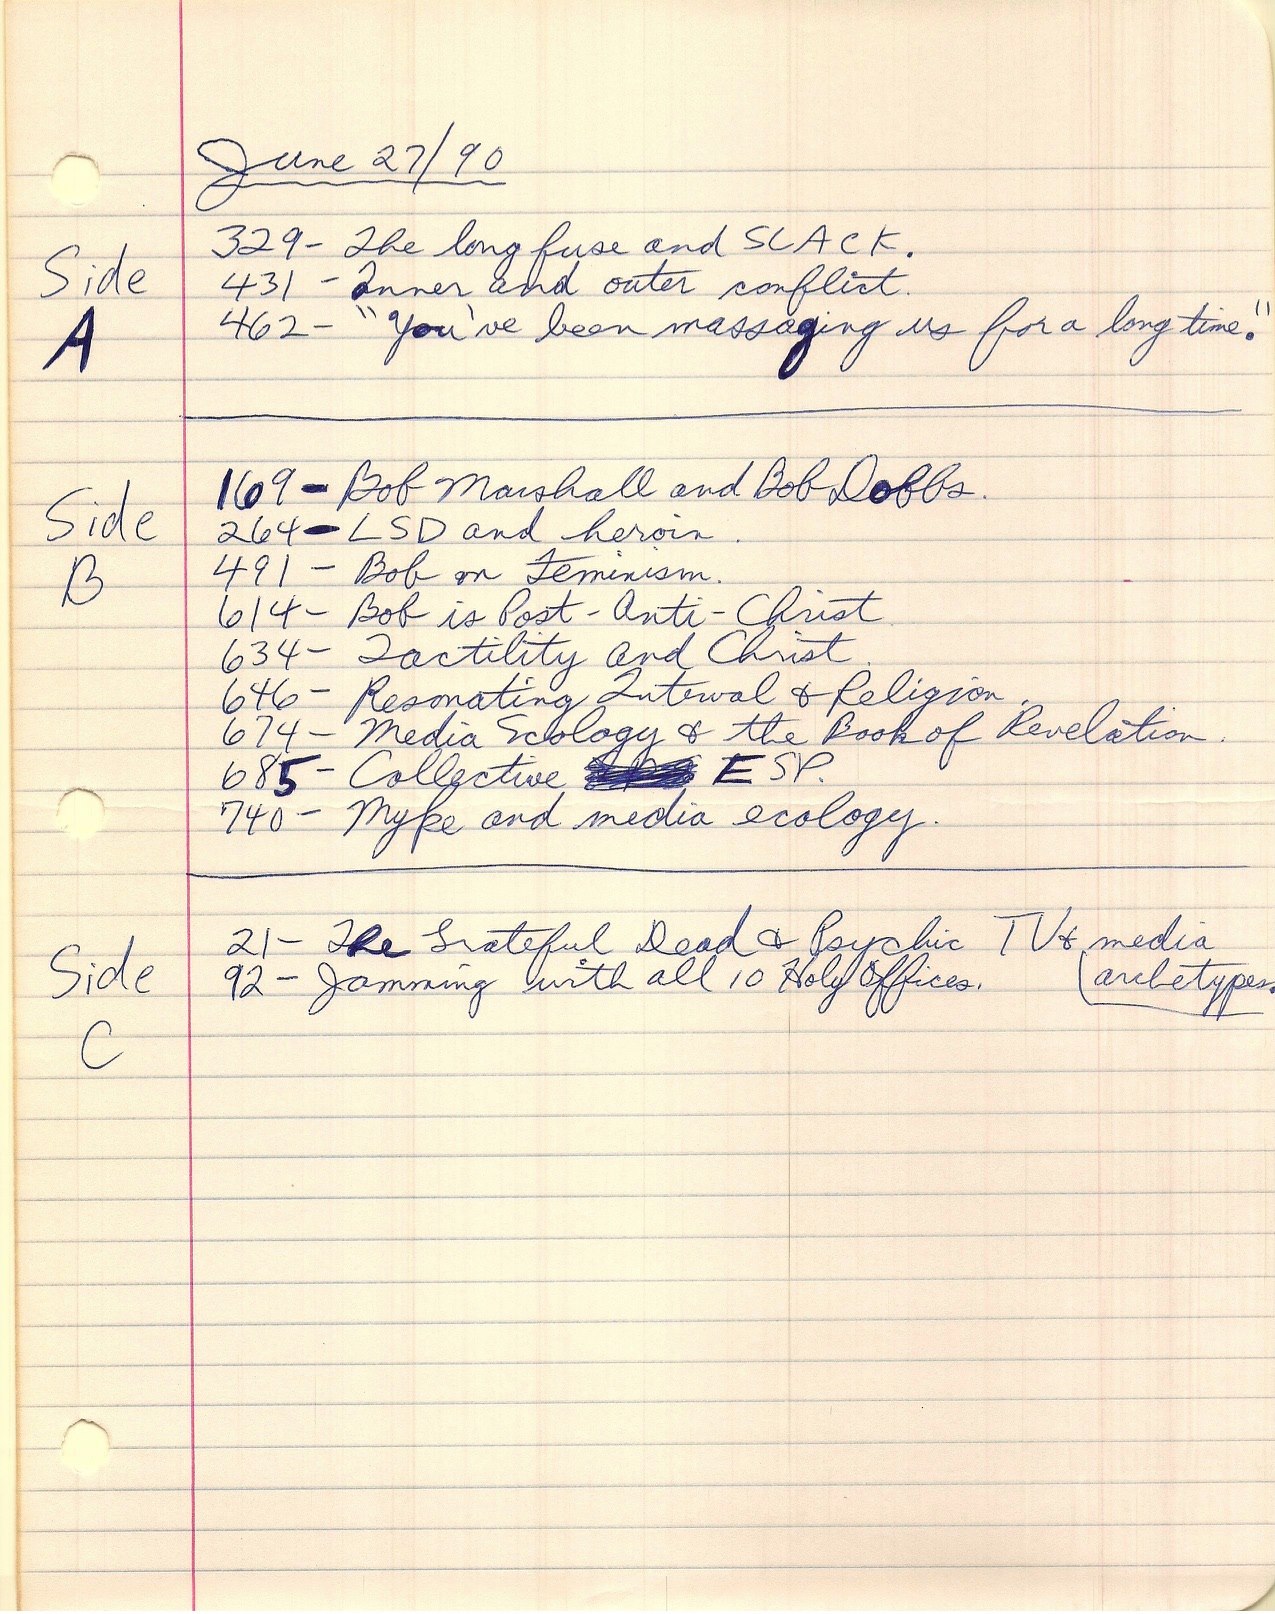 June 27/90
Side A
329- The long fuse and SLACK.
431 - Inner and outer conflict.
462- "You've been massaging us for a long time."
Side B
169- Bob Marshall and Bob Dobbs.
264- LSD and heroin.
491 - Bob on Feminism.
614- Bob is Post-Anti-Christ
634- Tactility and Christ.
646- Resonating Interval & Religion.
674- Media Ecology & the Book of Revelation.
685- Collective ESP.
740- Myke and media ecology.
Side C
21- The Grateful Dead & Psychic TV & media archetypes.
92- Jamming with all 10 Holy Offices.